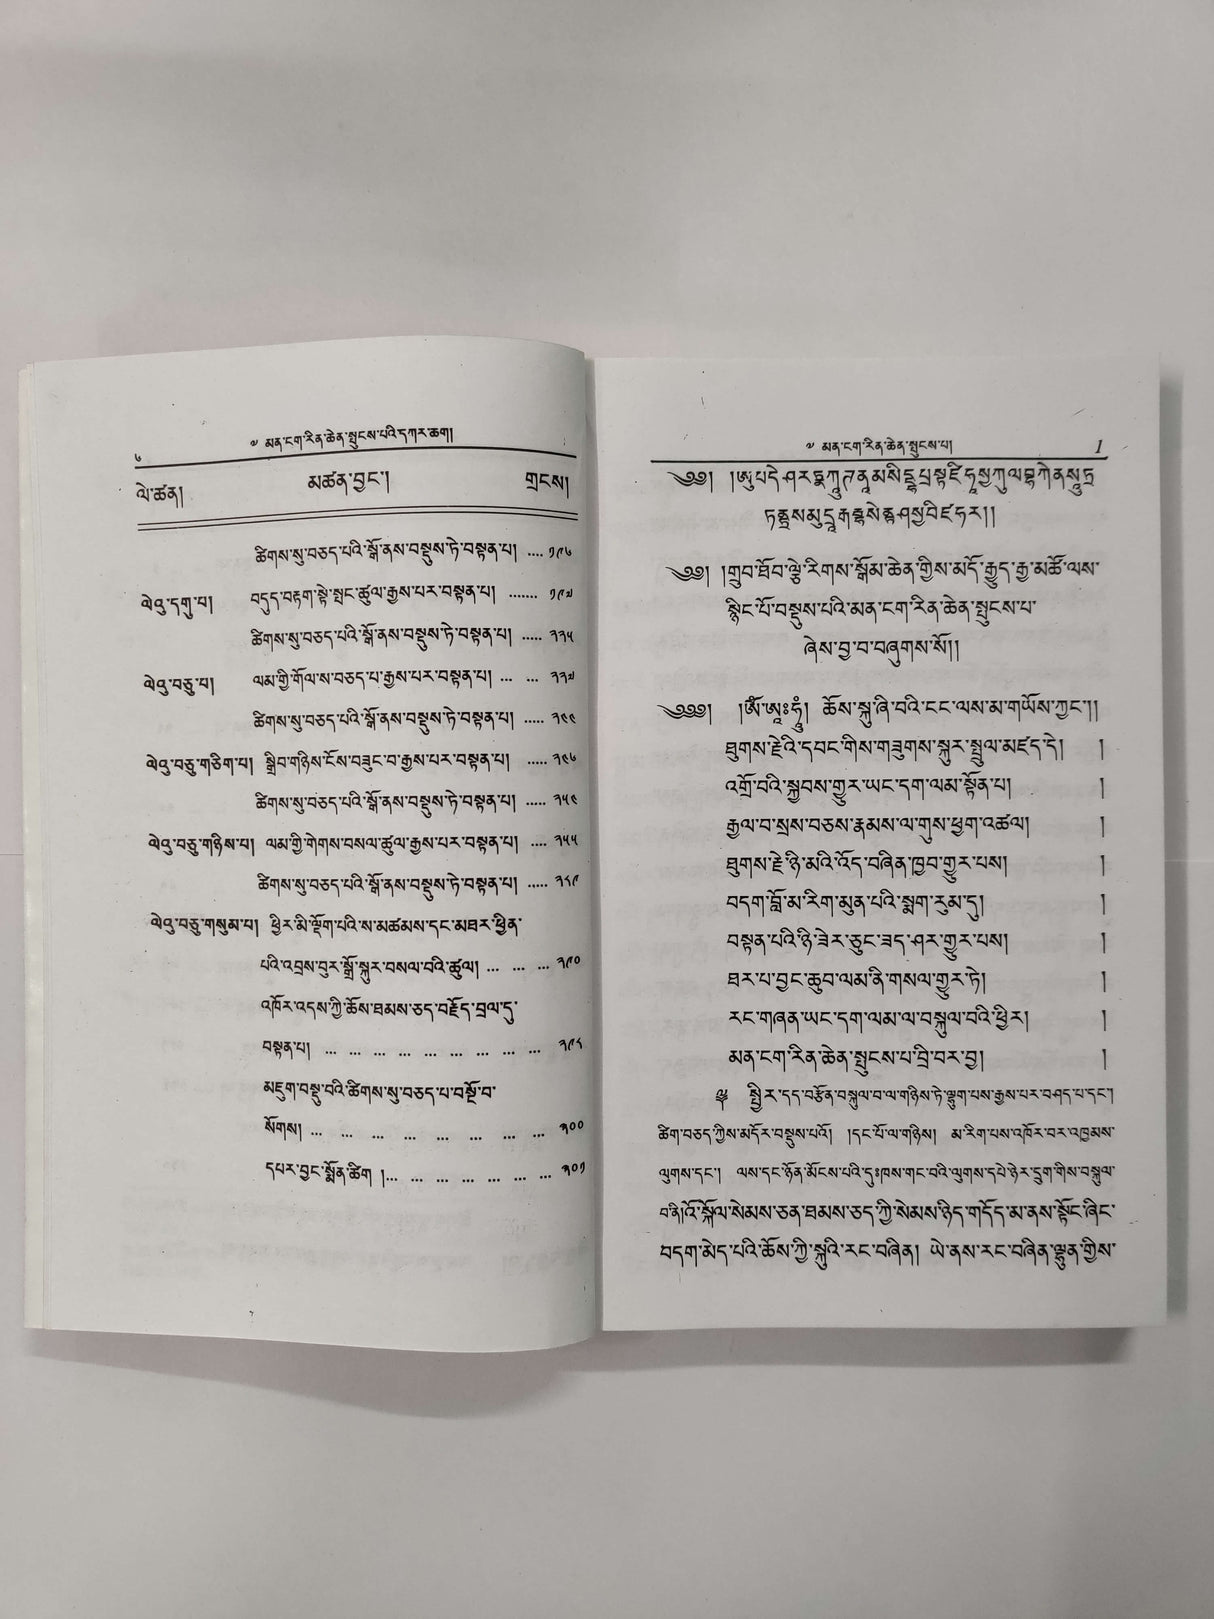 ༧ མན་ངག་རིན་ཆེན་སྤུངས་པའི་དཀར་ཆག།
༦
ལེ་ཚན། མཚན་བྱང་། གྲངས།
ཚིགས་སུ་བཅད་པའི་སྒོ་ནས་བསྡུས་ཏེ་བསྟན་པ། .... ༡༩༦
ལེའུ་དགུ་པ། བདུད་བརྟག་སྟེ་སྤང་ཚུལ་རྒྱས་པར་བསྟན་པ། ....... ༡༩༧
ཚིགས་སུ་བཅད་པའི་སྒོ་ནས་བསྡུས་ཏེ་བསྟན་པ། ..... ༢༢༥
ལེའུ་བཅུ་པ། ལམ་གྱི་གོལ་ས་བཅད་པ་རྒྱས་པར་བསྟན་པ། ... ... ༢༢༧
ཚིགས་སུ་བཅད་པའི་སྒོ་ནས་བསྡུས་ཏེ་བསྟན་པ། .....
ལེའུ་བཅུ་གཅིག་པ། སྒྲིབ་གཉིས་ངོས་བཟུང་བ་རྒྱས་པར་བསྟན་པ། .....
ཚིགས་སུ་བཅད་པའི་སྒོ་ནས་བསྡུས་ཏེ་བསྟན་པ། .....
ལེའུ་བཅུ་གཉིས་པ། ལམ་གྱི་གེགས་བསལ་ཚུལ་རྒྱས་པར་བསྟན་པ། .... ༢༥༥
ཚིགས་སུ་བཅད་པའི་སྒོ་ནས་བསྡུས་ཏེ་བསྟན་པ། ..... ༢༨༩
ལེའུ་བཅུ་གསུམ་པ། ཕྱིར་མི་ལྡོག་པའི་ས་མཚམས་དང་མཐར་ཕྱིན་
པའི་འབྲས་བུར་སྒྲོ་སྐུར་བསལ་བའི་ཚུལ། ... ... ... ༢༩༠
འཁོར་འདས་ཀྱི་ཆོས་ཐམས་ཅད་བརྗོད་བྲལ་དུ་
བསྟན་པ། ... ... ... ... ... ... ... ... ... ༢༩༨
མཇུག་བསྡུ་བའི་ཚིགས་སུ་བཅད་པ་བསྔོ་བ་
སོགས། ... ... ... ... ... ... ... ... ༣༠༠
དཔར་བྱང་སྨོན་ཚིག །... ... ... ... ... ... ... ༣༠༡
༧ མན་ངག་རིན་ཆེན་སྤུངས་པ། 1
༄༅། །གྲུབ་ཐོབ་ལྕེ་རིགས་སྒོམ་ཆེན་གྱིས་མདོ་རྒྱུད་རྒྱ་མཚོ་ལས་
སྙིང་པོ་བསྡུས་པའི་མན་ངག་རིན་ཆེན་སྤུངས་པ་
ཞེས་བྱ་བ་བཞུགས་སོ།།
༄༅༅། །ཨོཾ་ཨཱཿཧཱུྃ། ཆོས་སྐུ་ཞི་བའི་ངང་ལས་མ་གཡོས་ཀྱང་།།
ཐུགས་རྗེའི་དབང་གིས་གཟུགས་སྐུར་སྤྲུལ་མཛད་དེ། །
འགྲོ་བའི་སྐྱབས་གྱུར་ཡང་དག་ལམ་སྟོན་པ། །
རྒྱལ་བ་སྲས་བཅས་རྣམས་ལ་གུས་ཕྱག་འཚལ། །
ཐུགས་རྗེ་ཉི་མའི་འོད་བཞིན་ཁྱབ་གྱུར་པས། །
བདག་བློ་མ་རིག་མུན་པའི་སྨག་རུམ་དུ། །
བསྟན་པའི་ཉི་ཟེར་ཅུང་ཟད་ཤར་གྱུར་པས། །
ཐར་པ་བྱང་ཆུབ་ལམ་ནི་གསལ་གྱུར་ཏེ། །
རང་གཞན་ཡང་དག་ལམ་ལ་བསྐུལ་བའི་ཕྱིར། །
མན་ངག་རིན་ཆེན་སྤུངས་པ་བྲི་བར་བྱ། །
སྤྱིར་དད་བརྩོན་བསྐུལ་བ་ལ་གཉིས་ཏེ་ལྷུག་པས་རྒྱས་པར་བཤད་པ་དང་།
ཚིག་བཅད་ཀྱིས་མདོར་བསྡུས་པའོ། །དང་པོ་ལ་གཉིས། མ་རིག་པས་འཁོར་བར་འཁྱམས་
ལུགས་དང་། ལས་དང་ཉོན་མོངས་པའི་དུཿཁས་གང་བའི་ལུགས་དཔེ་ཉེར་དྲུག་གིས་བསྐུལ་
བ་ནི།འོ་སྐོལ་སེམས་ཅན་ཐམས་ཅད་ཀྱི་སེམས་ཉིད་གདོད་མ་ནས་སྟོང་ཞིང་
བདག་མེད་པའི་ཆོས་ཀྱི་སྐུའི་རང་བཞིན། ཡེ་ནས་རང་བཞིན་ལྷུན་གྱིས་